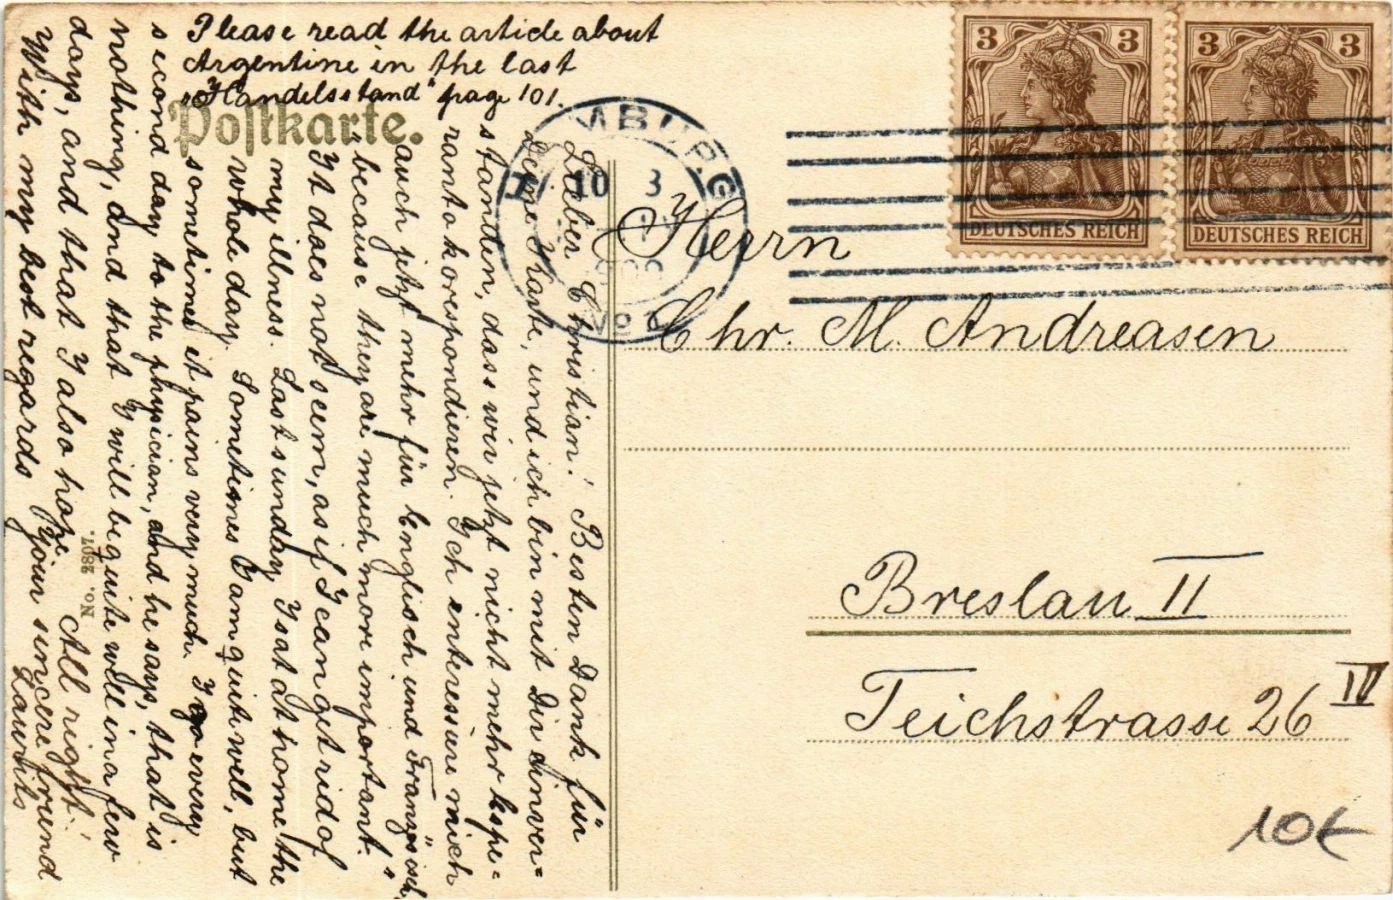 Please read the article about
Argentine in the last
„Handelsstand" page 101.
Postkarte.
Lieber Christian! Besten Dank für
Deine Karte, und ich bin mit Dir einver=
standen, dass wir jetzt nicht mehr Espe=
ranto korespondieren. Ich interessiere mich
auch jetzt mehr für Englisch und Französisch,
"because they are much more important."
It does not seem, as if I can get rid of
my illness. Last sunday I sat at home the
whole day. Sometimes I am quite well, but
sometimes it pains very much. I go every
second day to the physician, and he says, that is
nothing, and that I will be quite well in a few
days, and that I also hope. All right!
With my best regards Your sincere friend
Laurits
No. 2807.
HAMBURG
10 3
No 1
3 3
DEUTSCHES REICH
3 3
DEUTSCHES REICH
Herrn
Chr. M. Andreasen
Breslau II
Teichstrasse 26 IV
10€